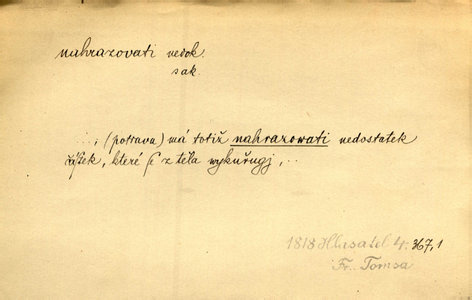 nahrazovati nedok.
sak.
..., (potrava) má totiž nahrazowati nedostatek
částek, které ſ z těla wykuřugj, ..
1818 Hlasatel 4. 367,1
Fr. Tomsa